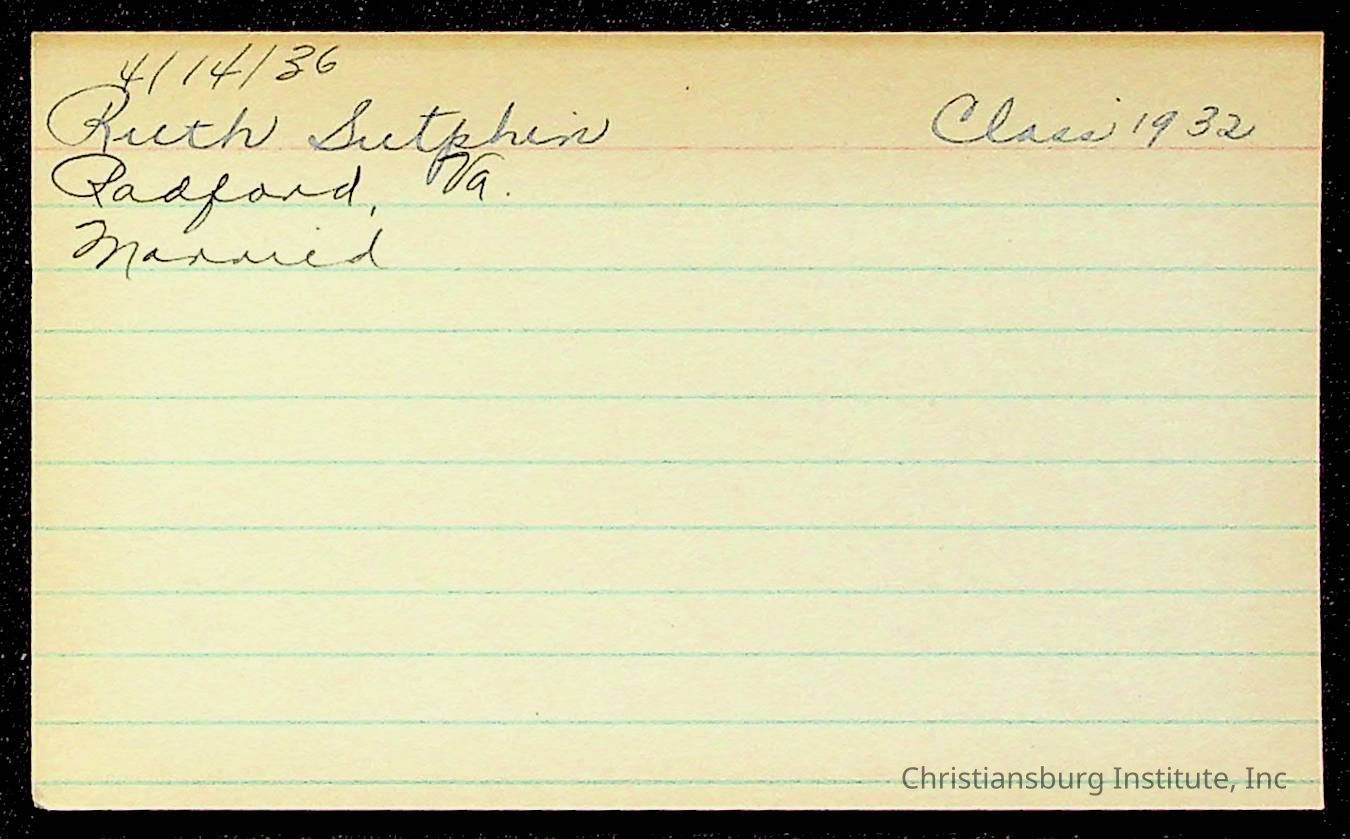 4/14/36
Ruth Sutphin Class 1932
Radford, Va.
Married
Christiansburg Institute, Inc